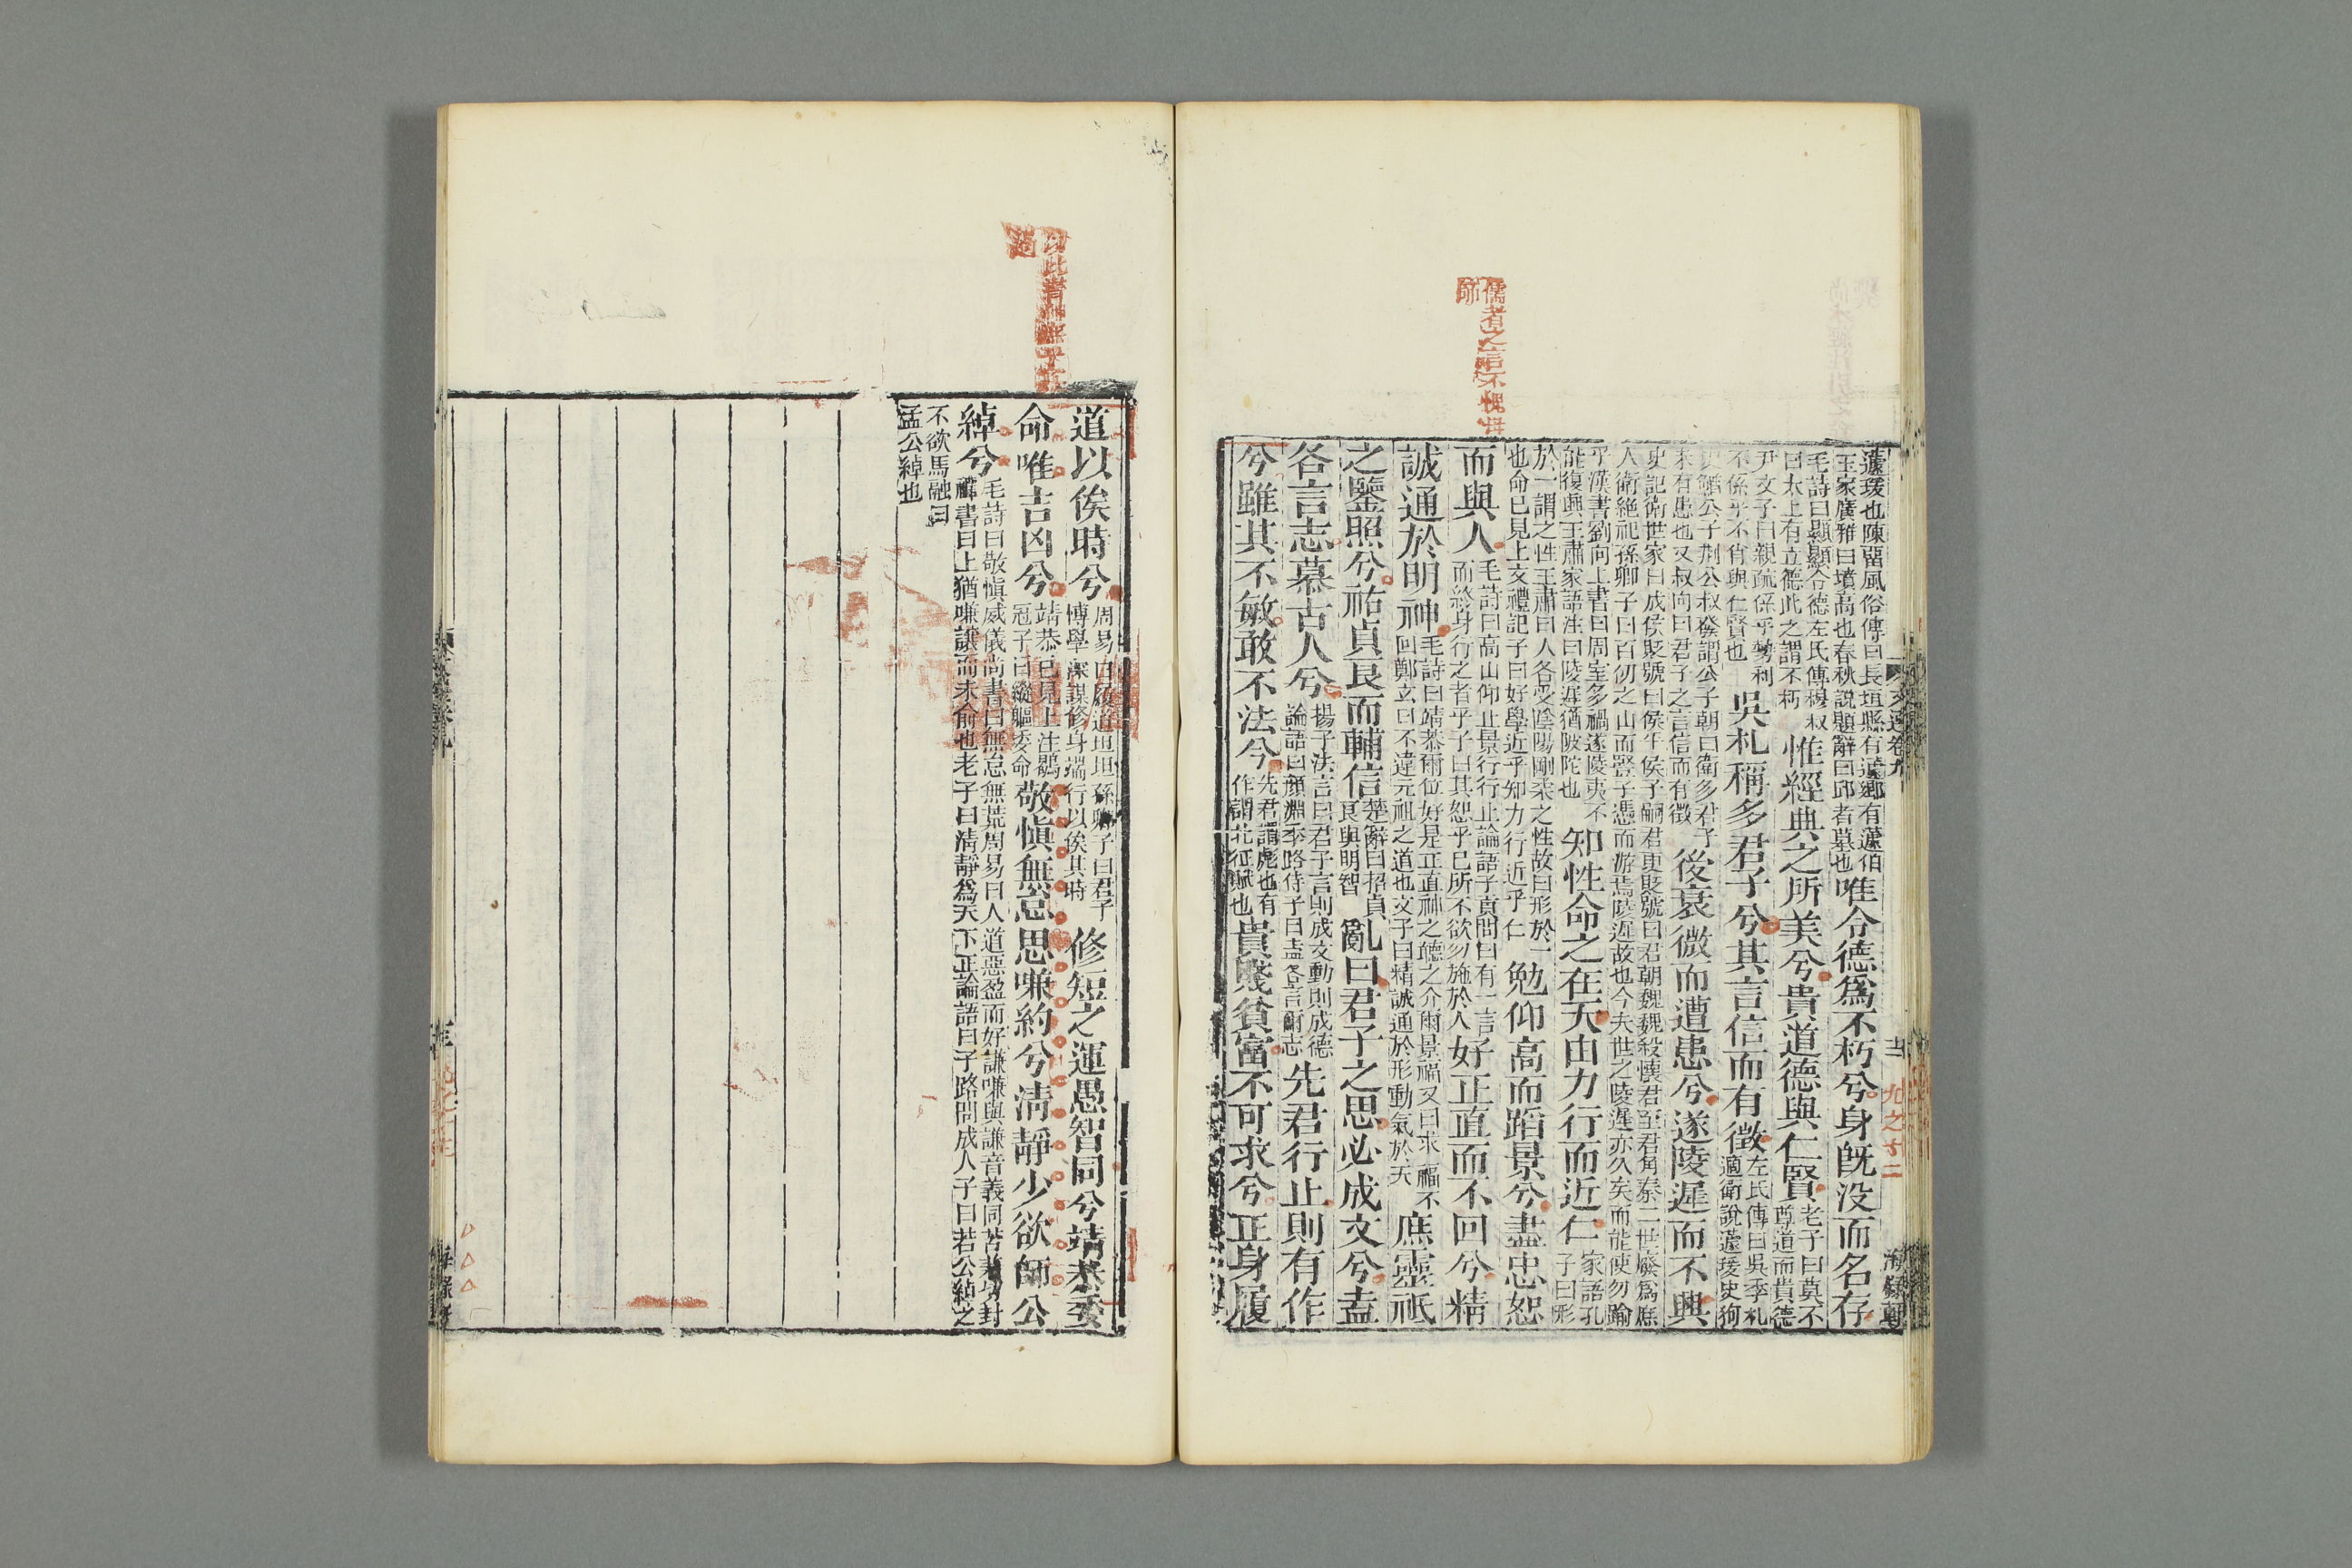 蘧瑗也陳留風俗傳曰長垣縣有蘧鄉有蘧伯
玉冢廣雅曰墳高也春秋說題辭曰邱者墓也
唯令德爲不朽兮身旣没而名存
毛詩曰顯顯令德左氏傳穆叔
曰太上有立德此之謂不朽
惟經典之所美兮貴道德與仁賢
老子曰莫不
尊道而貴德
尹文子曰親疏係乎勢利
不係乎不肖與仁賢也
吳札稱多君子兮其言信而有徵
左氏傳曰吳季札
適衛說蘧瑗史狗
史鰌公子荆公叔發謂公子朝曰衛多君子
未有患也又叔向曰君子之言信而有徵
後衰微而遭患兮遂陵遲而不興
史記衛世家曰成侯貶號曰侯平侯子嗣君更貶號曰君朝魏魏殺懷君至君角秦二世廢爲庶
人衛絶祀孫卿子曰百仞之山而豎子憑而游焉陵遲故也今夫世之陵遲亦久矣而能使勿踰
乎漢書劉向上書曰周室多禍遂陵夷不
能復興王肅家語注曰陵遲猶陂陀也
知性命之在天由力行而近仁
家語孔
子曰形
於一謂之性王肅曰人各受陰陽剛柔之性故曰形於一
也命已見上文禮記子曰好學近乎知力行近乎仁
勉仰高而蹈景兮盡忠恕
而與人
毛詩曰高山仰止景行行止論語子貢問曰有一言
而終身行之者乎子曰其恕乎已所不欲勿施於人
好正直而不回兮精
誠通於明神
毛詩曰靖恭爾位好是正直神之聽之介爾景福又曰求福不
回鄭玄曰不違元祖之道也文子曰精誠通於形動氣於天
庶靈祇
之鑒照兮祐貞良而輔信
楚辭曰招貞
良與明智
亂曰君子之思必成文兮盍
各言志慕古人兮
揚子法言曰君子言則成文動則成德
論語曰顔淵季路侍子曰盍各言爾志
先君行止則有作
兮雖其不敏敢不法兮
先君謂彪也有
作謂北征賦也
貴賤貧富不可求兮正身履
文選卷九
十二
九之十二
海錄軒
儒者之言不愧母
師
道以俟時兮
周易曰履道坦坦孫卿子曰君子
博學深謀修身端行以俟其時
修短之運愚智同兮靖恭委
命唯吉凶兮
靖恭已見上注鶡
冠子曰縱軀委命
敬慎無怠思嗛約兮清靜少欲師公
綽兮
毛詩曰敬慎威儀尚書曰無怠無荒周易曰人道惡盈而好謙嗛與謙音義同苦兼切封
禪書曰上猶嗛讓而未俞也老子曰清靜爲天下正論語曰子路問成人子曰若公綽之
不欲馬融曰
孟公綽也